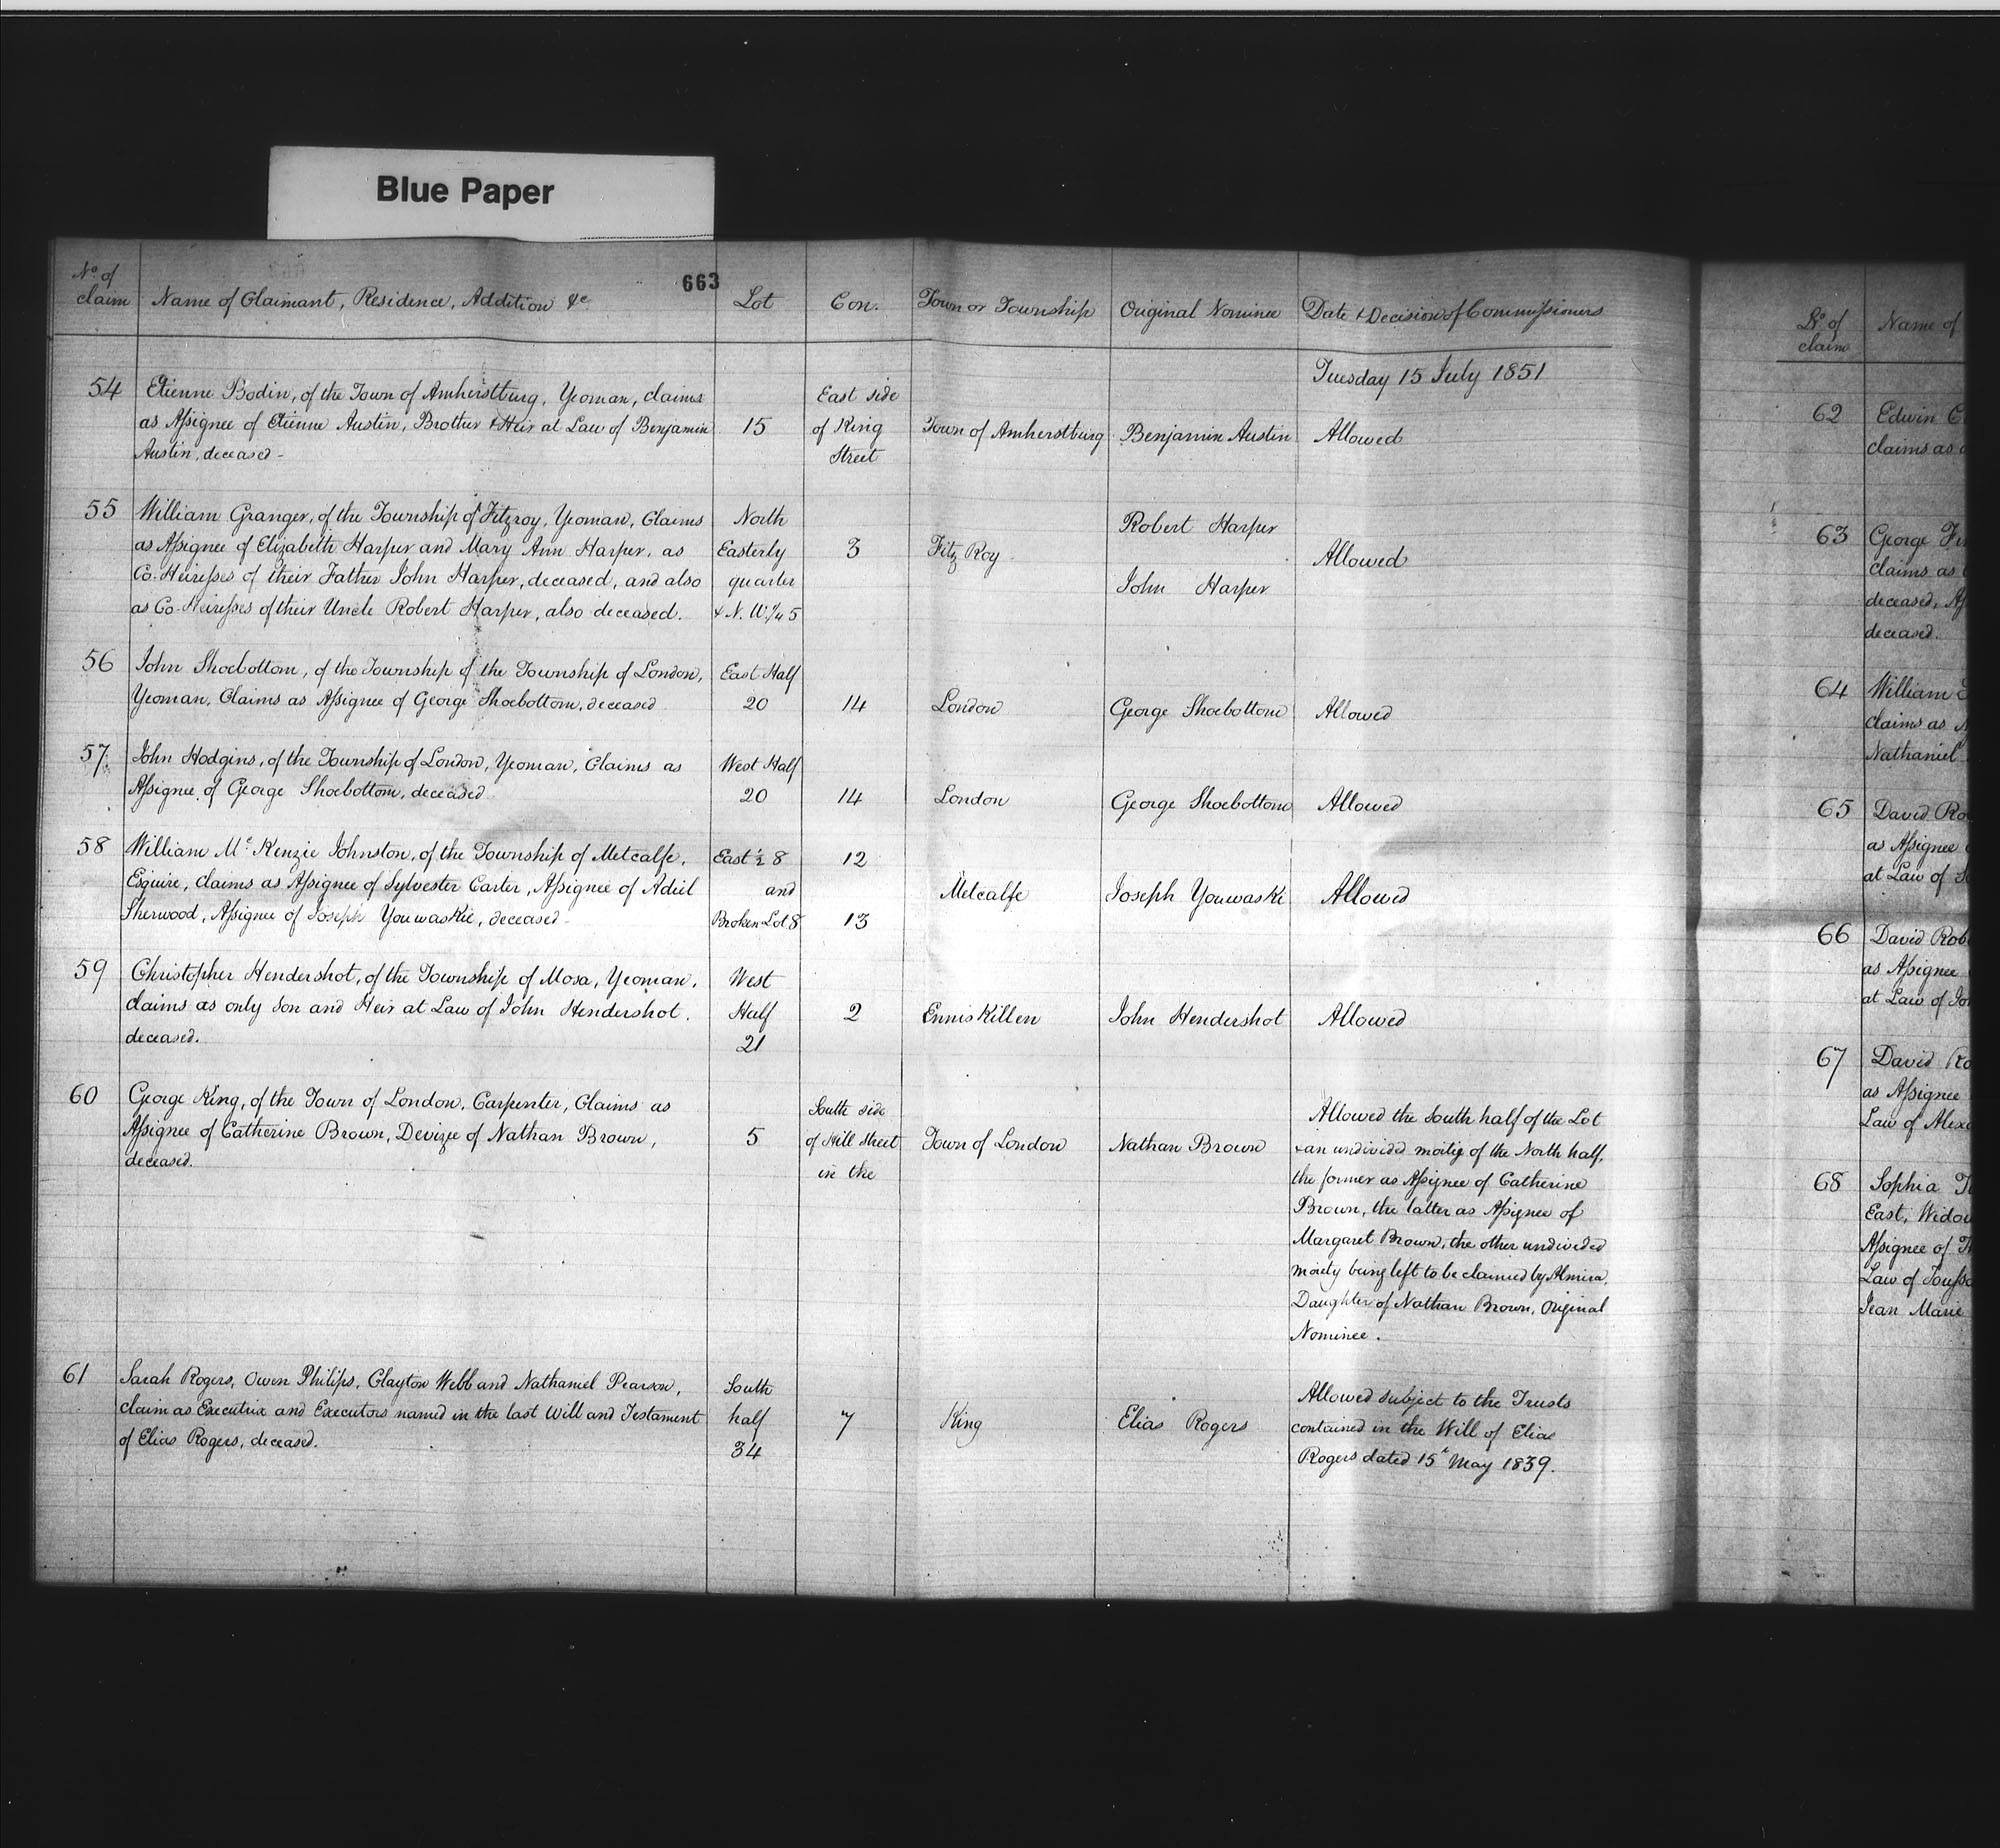 Blue Paper
663
No. of
claim
Name of Claimant, Residence, Addition &c
Lot
Con.
Town or Township
Original Nominee
Date & Decision of Commissioners
Tuesday 15 July 1851
54
Etienne Bodin, of the Town of Amherstburg, Yeoman, claims
as Assignee of Etienne Austin, Brother & Heir at Law of Benjamin
Austin, deceased -
15
East side
of King
Street
Town of Amherstburg
Benjamin Austin
Allowed
55
William Granger, of the Township of Fitzroy, Yeoman, Claims
as Assignee of Elizabeth Harper and Mary Ann Harper, as
Co-Heiresses of their Father John Harper, deceased, and also
as Co-Heiresses of their Uncle Robert Harper, also deceased.
North
Easterly
quarter
& N. W. 1/4 5
3
Fitz Roy
Robert Harper
John Harper
Allowed
56
John Shoebottom, of the Township of the Township of London,
Yeoman, Claims as Assignee of George Shoebottom, deceased
East Half
20
14
London
George Shoebottom
Allowed
57
John Hodgins, of the Township of London, Yeoman, Claims as
Assignee of George Shoebottom, deceased
West Half
20
14
London
George Shoebottom
Allowed
58
William Mc Kenzie Johnston, of the Township of Metcalfe,
Esquire, claims as Assignee of Sylvester Carter, Assignee of Adiel
Sherwood, Assignee of Joseph Youwaskie, deceased -
East ½ 8
and
Broken Lot 8
12
13
Metcalfe
Joseph Youwaski
Allowed
59
Christopher Hendershot, of the Township of Mosa, Yeoman,
claims as only son and Heir at Law of John Hendershot,
deceased.
West
Half
21
2
Enniskillen
John Hendershot
Allowed
60
George King, of the Town of London, Carpenter, Claims as
Assignee of Catherine Brown, Devizee of Nathan Brown,
deceased.
5
South side
of Hill Street
in the
Town of London
Nathan Brown
Allowed the South half of the Lot
& an undivided moity of the North half,
the former as Assignee of Catherine
Brown, the latter as Assignee of
Margaret Brown, the other undivided
moiety being left to be claimed by Almira,
Daughter of Nathan Brown, Original
Nominee.
61
Sarah Rogers, Owen Philips, Clayton Webb and Nathaniel Pearson,
claim as Executrix and Executors named in the last Will and Testament
of Elias Rogers, deceased.
South
half
34
7
King
Elias Rogers
Allowed subject to the Trusts
contained in the Will of Elias
Rogers dated 15th May 1839.
No. of
claim
Name of
62
Edwin
claims as
63
George
claims as
deceased,
deceased.
64
William
claims as
Nathaniel
65
David
as Assignee
at Law of
66
David
as Assignee
at Law of
67
David
as Assignee
Law of
68
Sophia
East,
Assignee of
Law of
Jean Marie